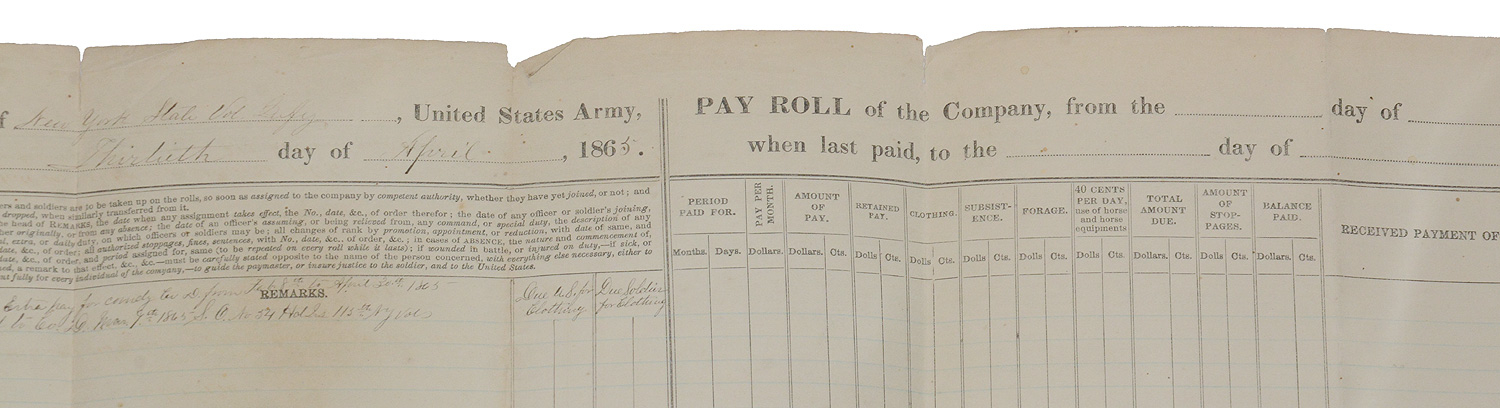 f New York State Vol Infy , United States Army,
Thirtieth day of April , 1865.
ers and soldiers are to be taken up on the rolls, so soon as assigned to the company by competent authority, whether they have yet joined, or not; and
dropped, when similarly transferred from it.
he head of REMARKS, the date when any assignment takes effect, the No., date, &c., of order therefor; the date of any officer or soldier's joining,
her originally, or from any absence; the date of an officer's assuming, or being relieved from, any command, or special duty, the description of any
al, extra, or daily duty, on which officers or soldiers may be; all changes of rank by promotion, appointment, or reduction, with date of same, and
date, &c., of order; all authorized stoppages, fines, sentences, with No., date, &c., of order, &c.; in cases of ABSENCE, the nature and commencement of,
date, &c., of order, and period assigned for, same (to be repeated on every roll while it lasts); if wounded in battle, or injured on duty,—if sick, or
ned, a remark to that effect, &c., &c.—must be carefully stated opposite to the name of the person concerned, with everything else necessary, either to
nt fully for every individual of the company,—to guide the paymaster, or insure justice to the soldier, and to the United States.
REMARKS.
Extra pay for comdg Co D. from Feb 8th to April 30th 1865
to Co. D. Mar 7th 1865 S. O. No 54 Hd Qrs 115th NY Vols
Due U.S. for Clothing
Due Soldier for Clothing
PAY ROLL of the Company, from the day of
when last paid, to the day of
PERIOD PAID FOR.
PAY PER MONTH.
AMOUNT OF PAY.
RETAINED PAY.
CLOTHING.
SUBSIST-ENCE.
FORAGE.
40 CENTS PER DAY, use of horse and horse equipments
TOTAL AMOUNT DUE.
AMOUNT OF STOP-PAGES.
BALANCE PAID.
RECEIVED PAYMENT OF
Months. Days. Dollars. Dollars. Cts. Dolls Cts. Dolls Cts. Dolls Cts. Dolls Cts. Dolls Cts. Dollars. Cts. Dolls Cts. Dollars. Cts.